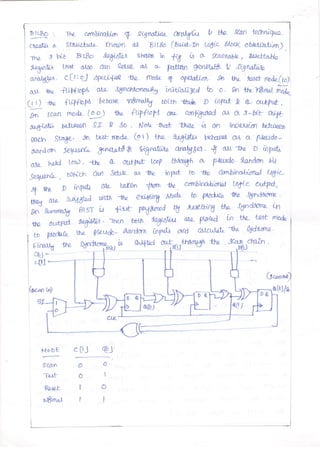 BILBO : The combination of Signature analysis & the Scan technique
creates a structure known as BILBO (Built-In Logic Block Observation).
The 3 bit BILBO register shown in fig is a scannable, resettable
register that also can serve as a pattern generator & signature
analyzer. C[1:0] specifies the mode of operation. In the reset mode (10)
all the flipflops are synchronously initialized to 0. In the normal mode
(11) the flipflops behave normally with their D input & Q output.
In scan mode (00) the flipflops are configured as a 3-bit shift
register between SI & SO. Note that there is an inversion between
each stage. In test mode (01) the register behaves as a pseudo-
random sequence generator & signature analyzer. If all the D inputs
are held low, the Q output loop through a pseudo random bit
sequence, which can serve as the input to the combinational logic.
If the D inputs are taken from the combinational logic output,
they are swapped with the existing state to produce the syndrome.
In summary BIST is first performed by resetting the syndrome in
the output register. Then both registers are placed in the test mode
to produce the pseudo-random inputs and calculate the syndrome.
Finally the syndrome is shifted out through the scan chain.
D[0] D[1] D[2]
C[0]
C[1]
(scan in)
SI
(scanout)
0
1
D Q
Q[0]
D Q
Q[1]
D Q
Q[2]/SO
CLK
MODE C[1] C[0]
Scan 0 0
Test 0 1
Reset 1 0
Normal 1 1